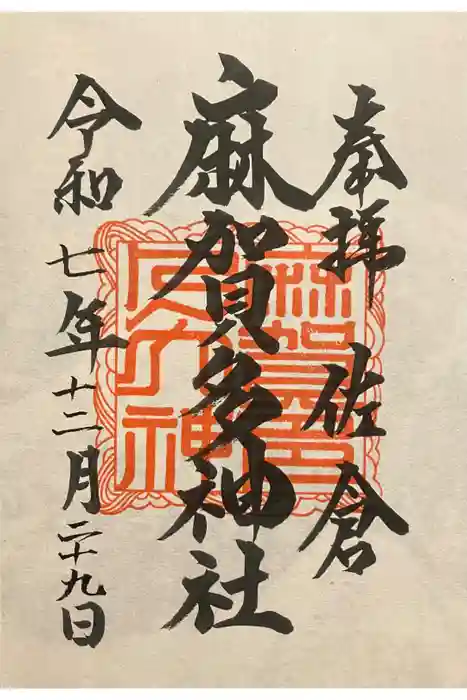 奉拝 佐倉
麻賀多神社
令和七年十二月二十九日